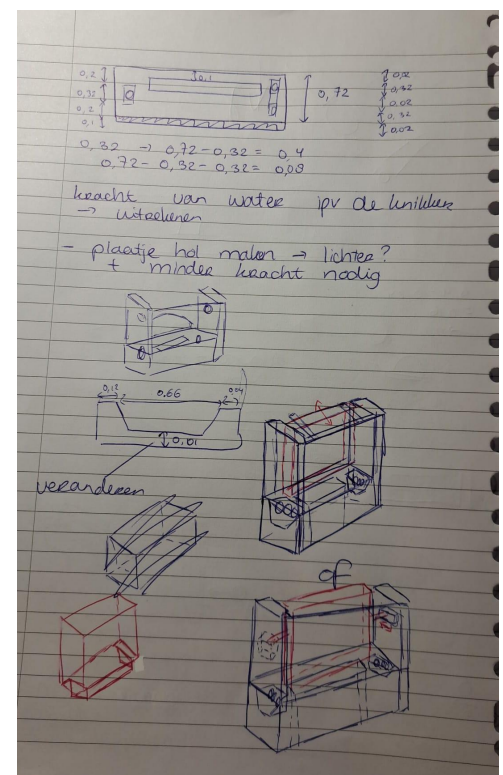 0,2
0,32
0,2
0,1
30,1
0,72
0,02
0,32
0,02
0,32
0,02
0,32 → 0,72-0,32 = 0,4
0,72-0,32-0,32 = 0,08
kracht van water ipv de knikker
→ uitrekenen
- plaatje hol maken → lichter?
+ minder kracht nodig
0,12
0.66
0,04
0,01
veranderen
of